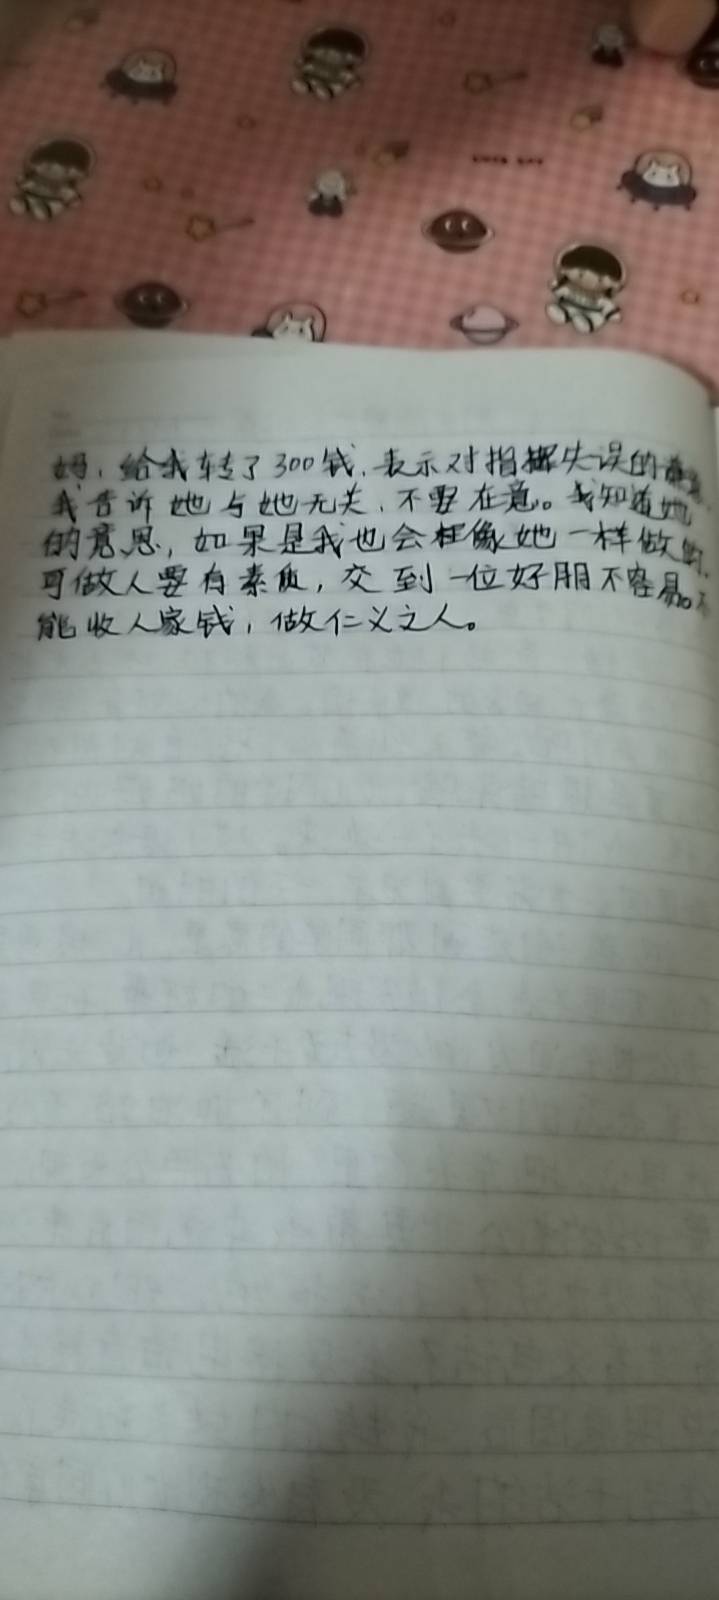 妈，给我转了300钱，表示对指挥失误的
我告诉她与她无关，不要在意。我知道她
的意思，如果是我也会像她一样做的，
可做人要有素质，交到一位好朋不容易。不
能收人家钱，做仁义之人。